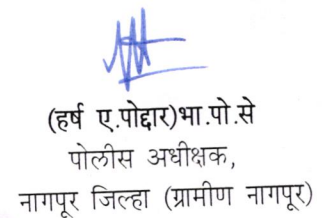 (हर्ष ए.पोद्दार)भा.पो.से
पोलीस अधीक्षक,
नागपूर जिल्हा (ग्रामीण नागपूर)